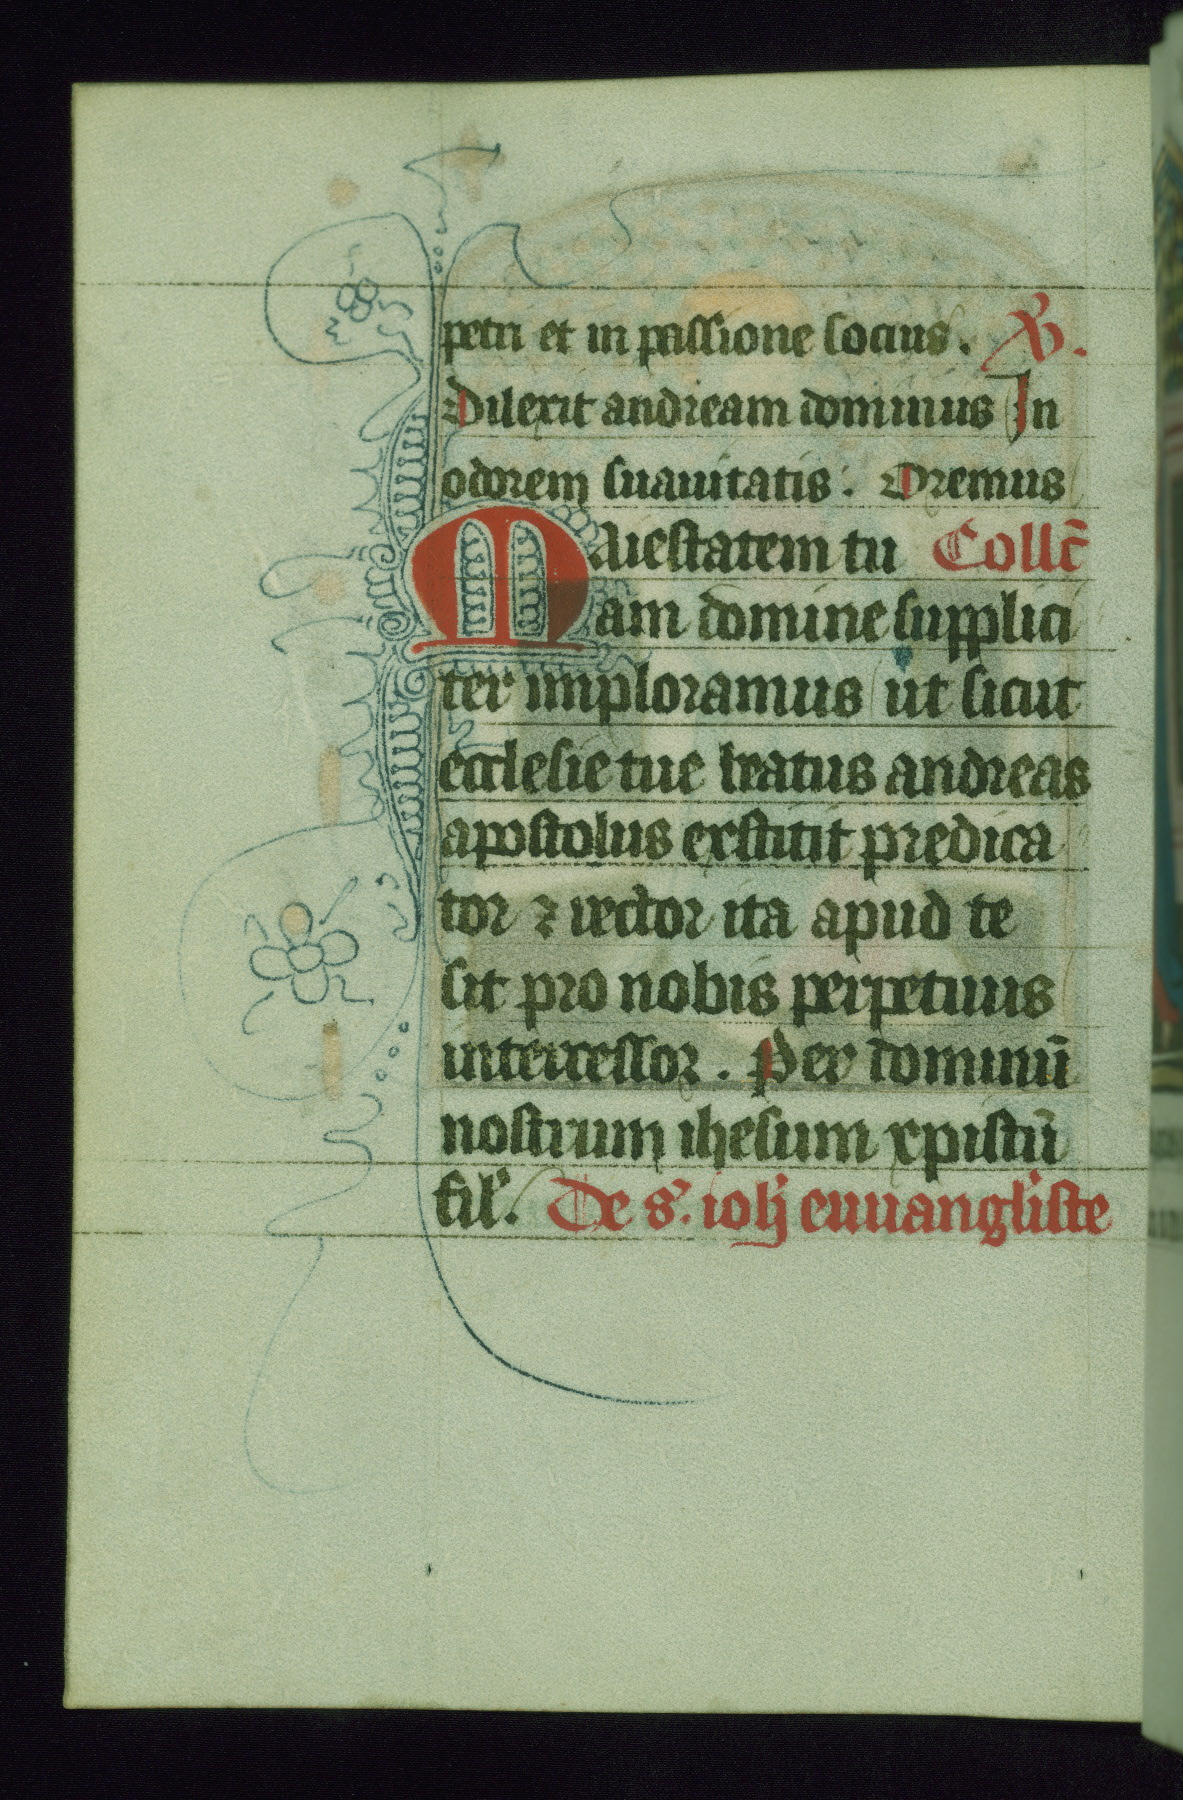 petri et in passione socius. V.
Dilexit andream dominus In
odorem suauitatis: Oremus
Maiestatem tu Collc̄
am domine supplici
ter imploramus ut sicut
ecclesie tue beatus andreas
apostolus exstitit predica
tor ⁊ rector ita apud te
sit pro nobis perpetuus
intercessor. Per dominū
nostrum ihesum xpistū
fil'. De s'. ioh̄ euuangl'iste